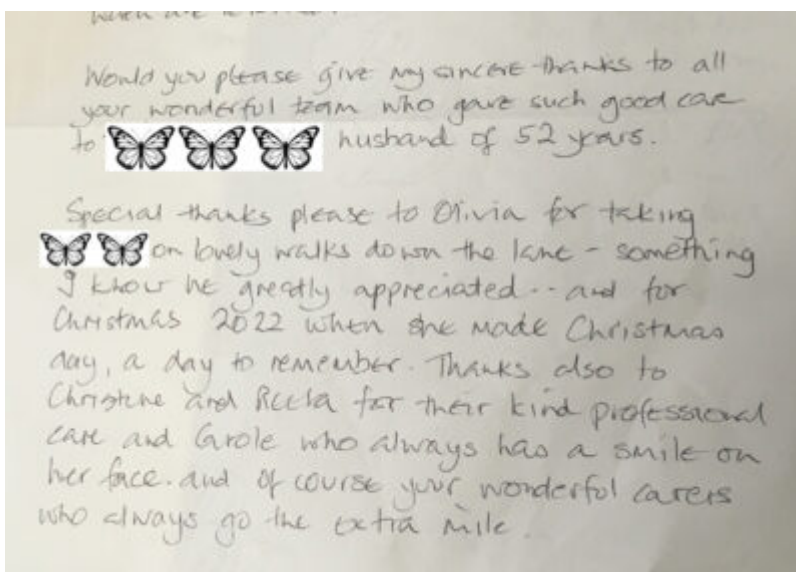 Would you please give my sincere thanks to all
your wonderful team who gave such good care
to husband of 52 years.
Special thanks please to Olivia for taking
on lovely walks down the lane - something
I know he greatly appreciated.. and for
Christmas 2022 when she made Christmas
day, a day to remember. Thanks also to
Christine and for their kind professional
care and who always has a smile on
her face. and of course your wonderful carers
who always go the extra mile.